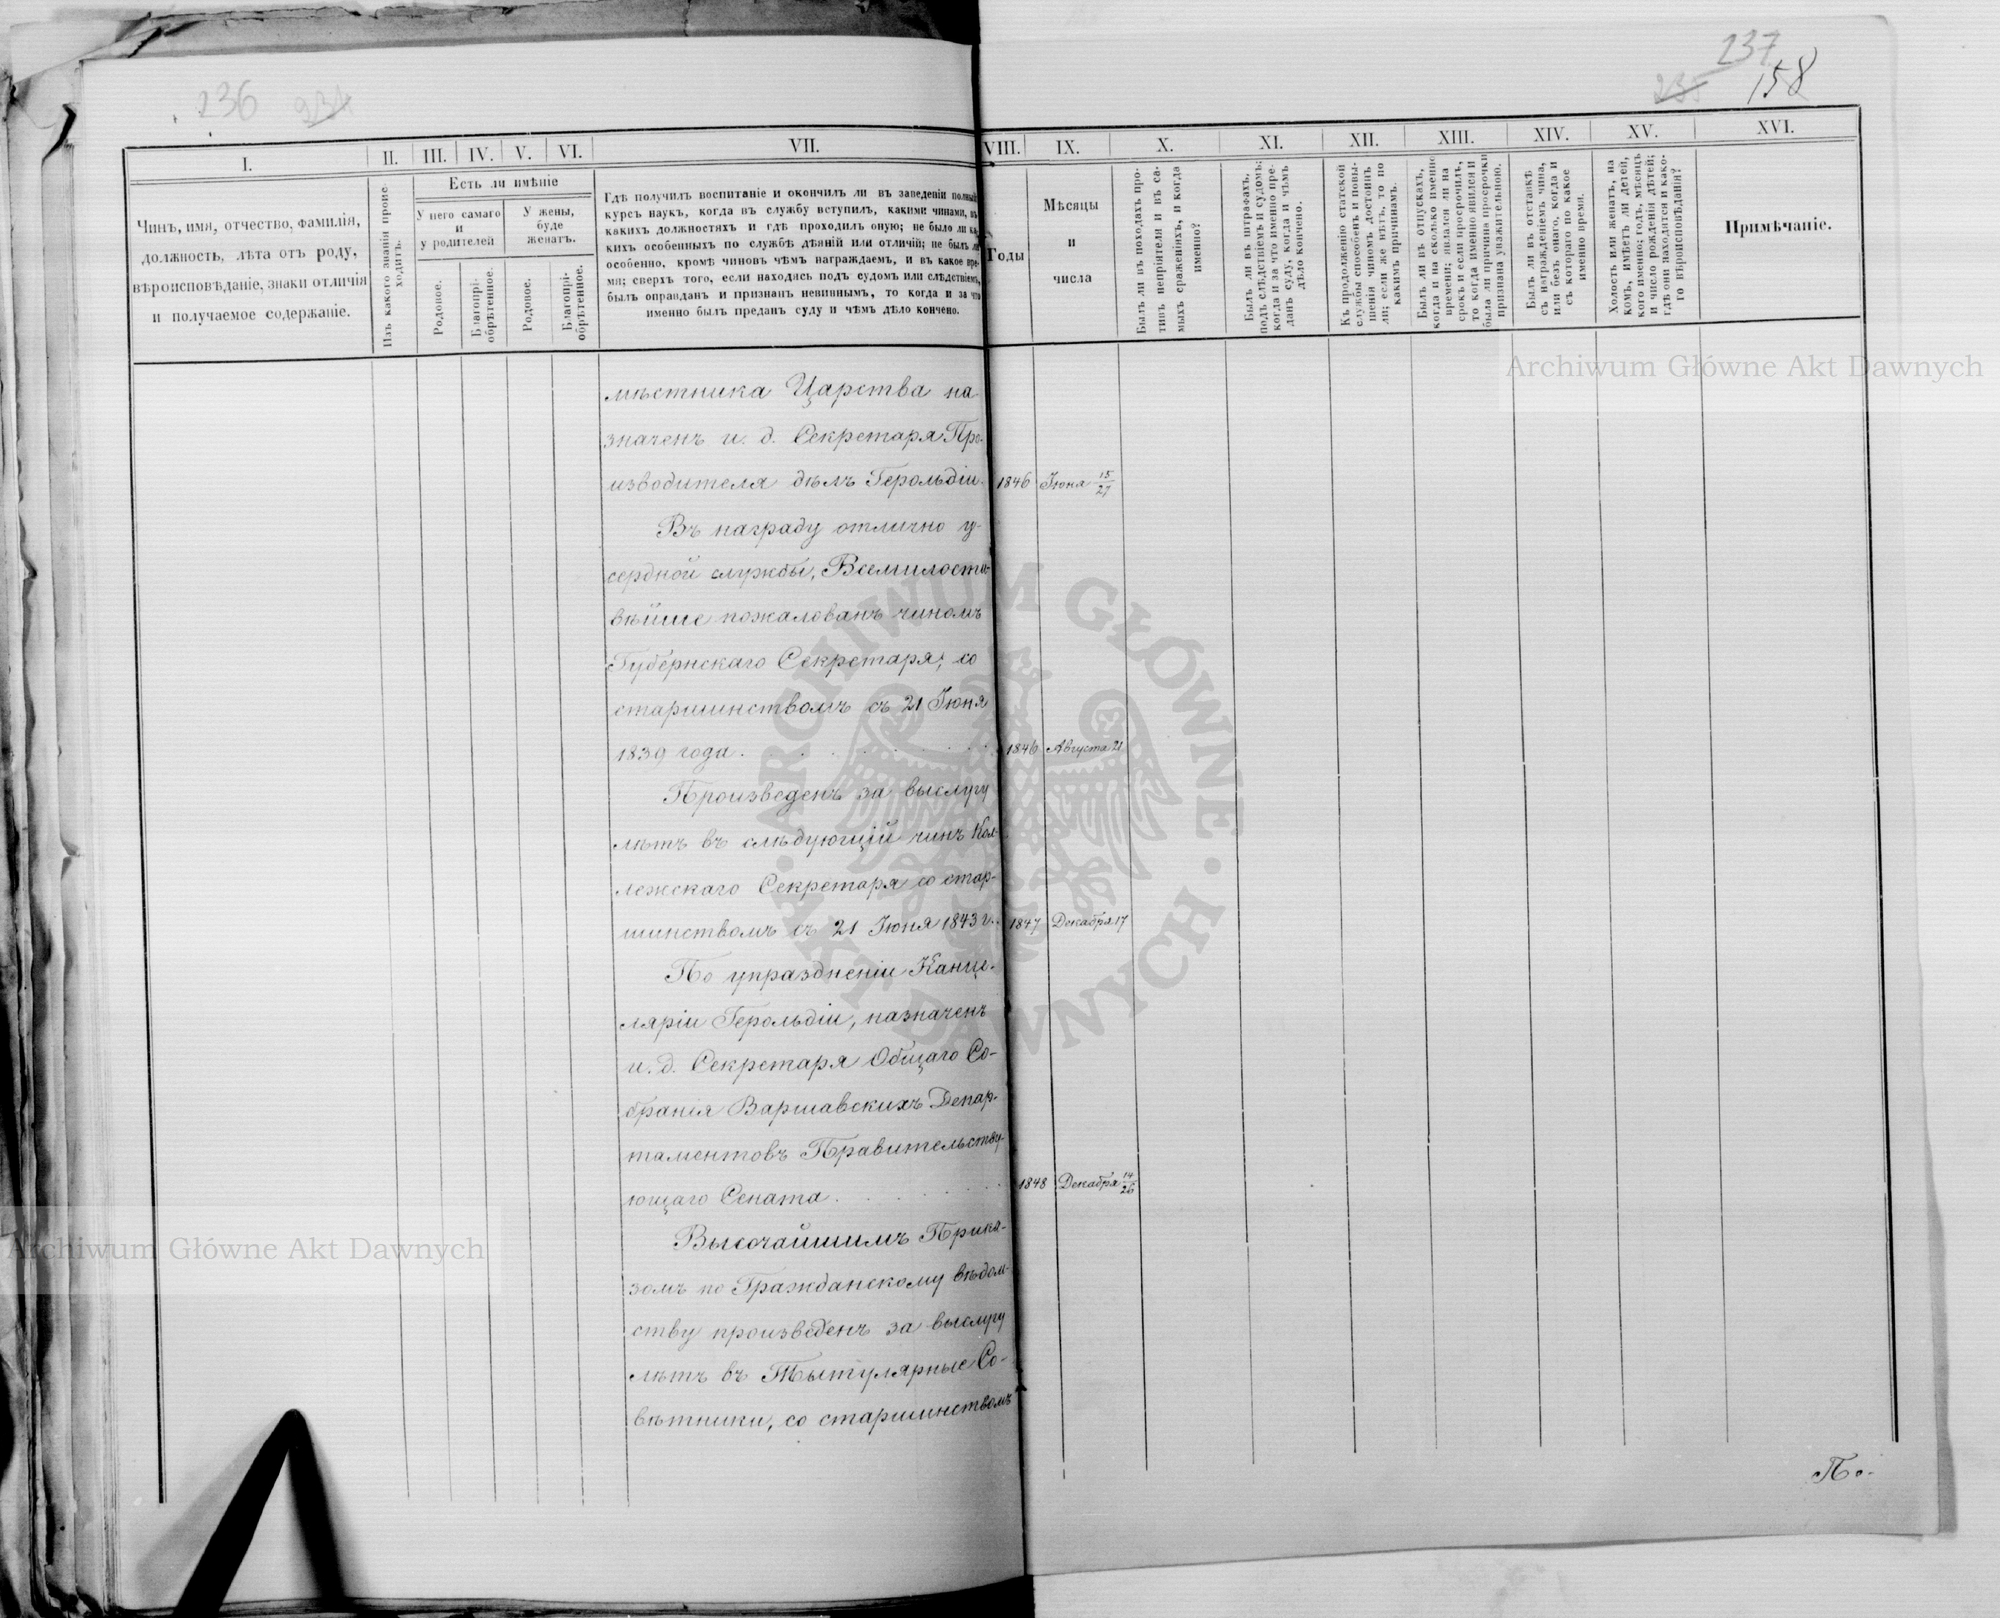 236
237
158
I.
II.
III.
IV.
V.
VI.
VII.
VIII.
IX.
X.
XI.
XII.
XIII.
XIV.
XV.
XVI.
Чинъ, имя, отчество, фамилія,
должность, лѣта отъ роду,
вѣроисповѣданіе, знаки отличія
и получаемое содержаніе.
Изъ какого званія проис-
ходитъ.
Есть ли имѣніе
У него самаго
и
у родителей
У жены,
буде
женатъ.
Родовое.
Благопрі-
обрѣтенное.
Родовое.
Благопрі-
обрѣтенное.
Гдѣ получилъ воспитаніе и окончилъ ли въ заведеніи полный
курсъ наукъ, когда въ службу вступилъ, какими чинами, въ
какихъ должностяхъ и гдѣ проходилъ оную; не было ли ка-
кихъ особенныхъ по службѣ дѣяній или отличій; не былъ ли
особенно, кромѣ чиновъ чѣмъ награждаемъ, и въ какое вре-
мя; сверхъ того, если находясь подъ судомъ или слѣдствіемъ,
былъ оправданъ и признанъ невиннымъ, то когда и за что
именно былъ преданъ суду и чѣмъ дѣло кончено.
Годы
Мѣсяцы
и
числа
Былъ ли въ походахъ про-
тивъ непріятеля и въ са-
мыхъ сраженіяхъ, и когда
именно?
Былъ ли въ штрафахъ,
подъ слѣдствіемъ и судомъ;
когда и за что именно пре-
данъ суду, когда и чѣмъ
дѣло кончено.
Къ продолженію статской
службы способенъ и повы-
шенія чиномъ достоинъ
ли; если же нѣтъ, то по
какимъ причинамъ.
Былъ ли въ отпускахъ,
когда и на сколько именно
времени; являлся ли на
срокъ и если просрочилъ,
то когда именно явился и
была ли причина просрочки
признана уважительною.
Былъ ли въ отставкѣ
съ награжденіемъ чина,
или безъ онаго, когда и
съ котораго по какое
именно время.
Холостъ или женатъ, на
комъ, имѣетъ ли дѣтей,
кого именно; годъ, мѣсяцъ
и число рожденія дѣтей;
гдѣ они находятся и како-
го вѣроисповѣданія?
Примѣчаніе.
мѣстника Царства на
значенъ и. д. Секретаря Про-
изводителя дѣлъ Герольдіи. 1846 Іюня 15/27
Въ награду отлично у-
сердной службы, Всемилости-
вѣйше пожалованъ чиномъ
Губернскаго Секретаря, со
старшинствомъ съ 21 Іюня
1839 года . . . . . . 1846 Августа 21
Произведенъ за выслугу
лѣтъ въ слѣдующій чинъ Кол-
лежскаго Секретаря со стар-
шинствомъ съ 21 Іюня 1843 г. 1847 Декабря 17
По упраздненіи Канце-
ляріи Герольдіи, назначенъ
и. д. Секретаря Общаго Со-
бранія Варшавскихъ Депар-
таментовъ Правительству-
ющаго Сената . . . . . . 1848 Декабря 14/26
Высочайшимъ Прика-
зомъ по Гражданскому вѣдом-
ству произведенъ за выслугу
лѣтъ въ Тытулярные Со-
вѣтники, со старшинствомъ
По-
Archiwum Główne Akt Dawnych
Archiwum Główne Akt Dawnych
ARCHIWUM GŁÓWNE AKT DAWNYCH